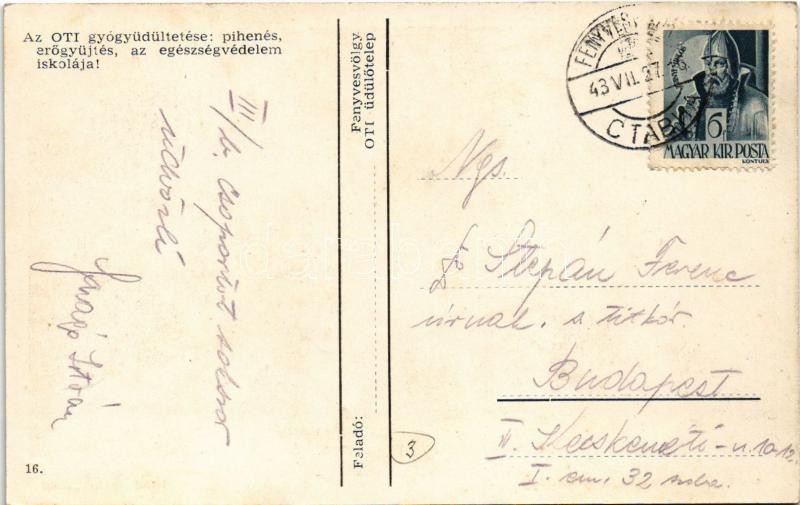 Az OTI gyógyüdültetése: pihenés,
erőgyüjtés, az egészségvédelem
iskolája!
III/b. csoportot sokszor
üdvözli
István
16.
Fenyvesvölgy
OTI üdülőtelep
Feladó:
3
43 VII. 27.
СТАВНА
6
MAGYAR KIR. POSTA
KONTULY
Ngs.
Dr Stepán Ferenc
úrnak. s. titkár.
Budapest
Kecskeméti-u. 10-12.
I. em. 32 szoba.